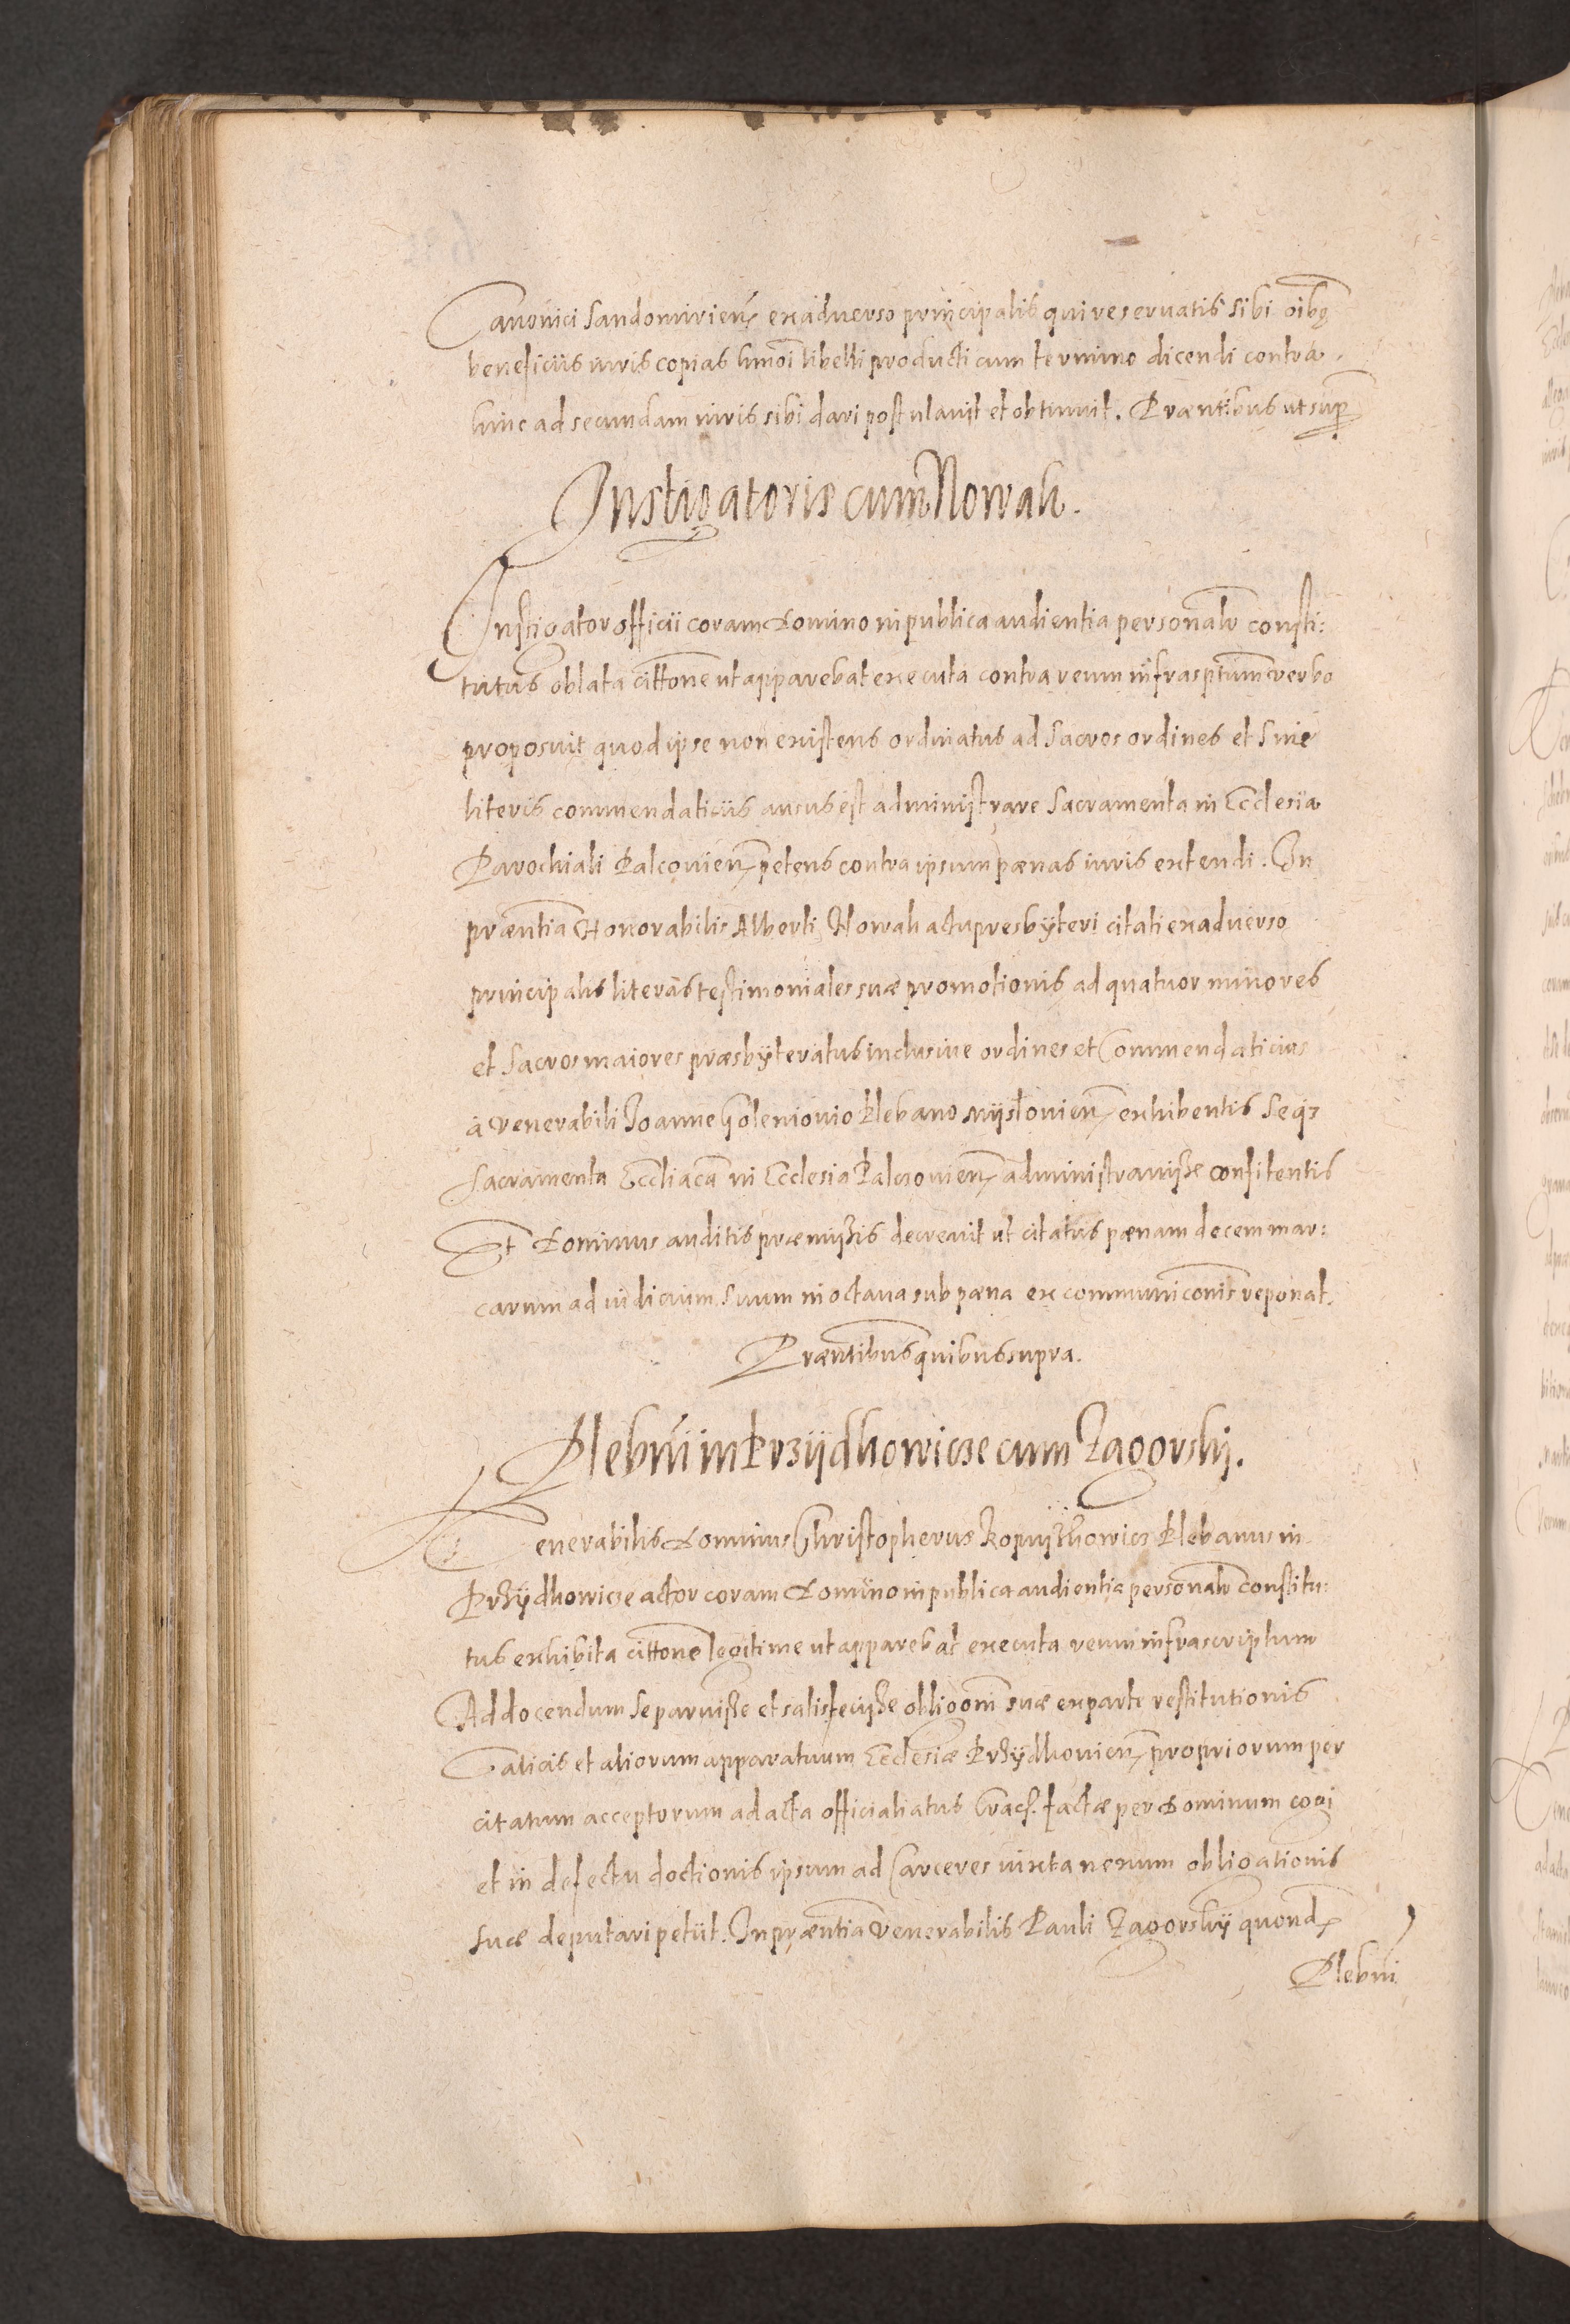 Canonici Sandomirien̄ exaduerso principalis qui reseruatis sibi oĩbꝫ
beneficiis iuris copias hmõi libelli producti cum termino dicendi contra
hinc ad secundam iuris sibi dari postulauit et obtinuit. Præntibus ut supꝛ
Instigatoris cum Nowak.
Instigator officii coram Domino in publica audientia personalr̃ consti:
tutus oblata cittõne ut apparebat executa contra reum infrasptum verbo
proposuit quod ipse non existens ordinatus ad Sacros ordines et Sine
literis commendaticiis ausus est administrare Sacramenta in Ecclesia
Parochiali Falcouien̄ petens contra ipsum pœnas iuris extendi. In
præntia Honorabilis Alberti Nowak actu presbÿteri citati exaduerso
principalis literas testimoniales suæ promotionis ad quatuor minores
et Sacros maiores præsbÿteratus inclusiue ordines et Commendaticias
à Venerabili Joanne Goleniouio Plebano Mÿslouien̄ exhibentis Seqꝫ
Sacramenta Eccliacã in Ecclesia Falcouien̄ administrauisse confitentis
Et Dominus auditis præmissis decreuit ut citatus pœnam decem mar:
carum ad iudicium Suum in octaua sub pœna excommunicõnis reponat.
Præntibus quibus supra.
Plebñi in Przÿdkowicze cum Zagorskj.
Venerabilis Dominus Christopherus Kopÿtkowicz Plebanus in
Przÿdkowicze actor coram Domino in publica audientia personalr̃ constitu:
tus exhibita cittõne legitime ut apparebat executa reum infrascriptum
Ad docendum Se paruisse et satisfecisse obligõni suæ ex parte restitutionis
Calicis et aliorum apparatuum Ecclesiæ Przÿdkouien̄ propriorum per
citatum acceptorum ad acta officialiatus Crac̃. factæ per Dominum cogi
et in defectu doctionis ipsum ad Carceres iuxta nexum obligationis
suæ deputari petiit. In præntia Venerabilis Pauli Zagorskÿ quond̃
Plebñi